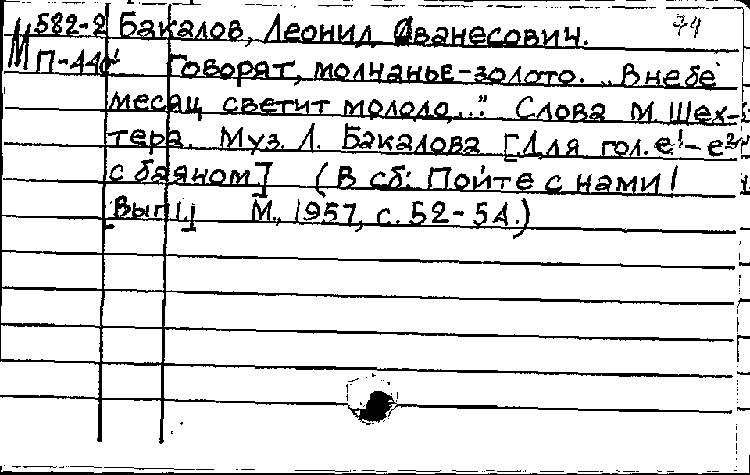 74
М 582-2 Бакалов, Леонид Ованесович.
П-440 Говорят, молчанье-золото. „В небе
месяц светит молодо..." Слова М Шех-
тера. Муз. Л. Бакалова [Для гол. е¹-е²
с баяном] (В сб: Пойте с нами!
[Вып 1.] М., 1957, с. 52-54.)